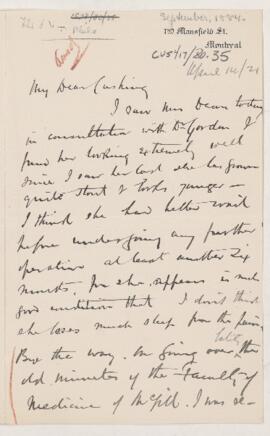 September, 1884.
CUS417/30.35
789 Mansfield St.
Montreal
April 14/21
My Dear Cushing
I saw Mrs Dean today
in consultation with Dr Gordon I
found her looking extremely well
since I saw her last she has grown
quite stout & looks younger —
I think she had better wait
before undergoing any further
operation at least another six
months. For she appears in such
good condition that I don't think
she loses much sleep from the pain,
Bye the way. On going over, the
old minutes of the Faculty of
Medicine of McGill. I was re-